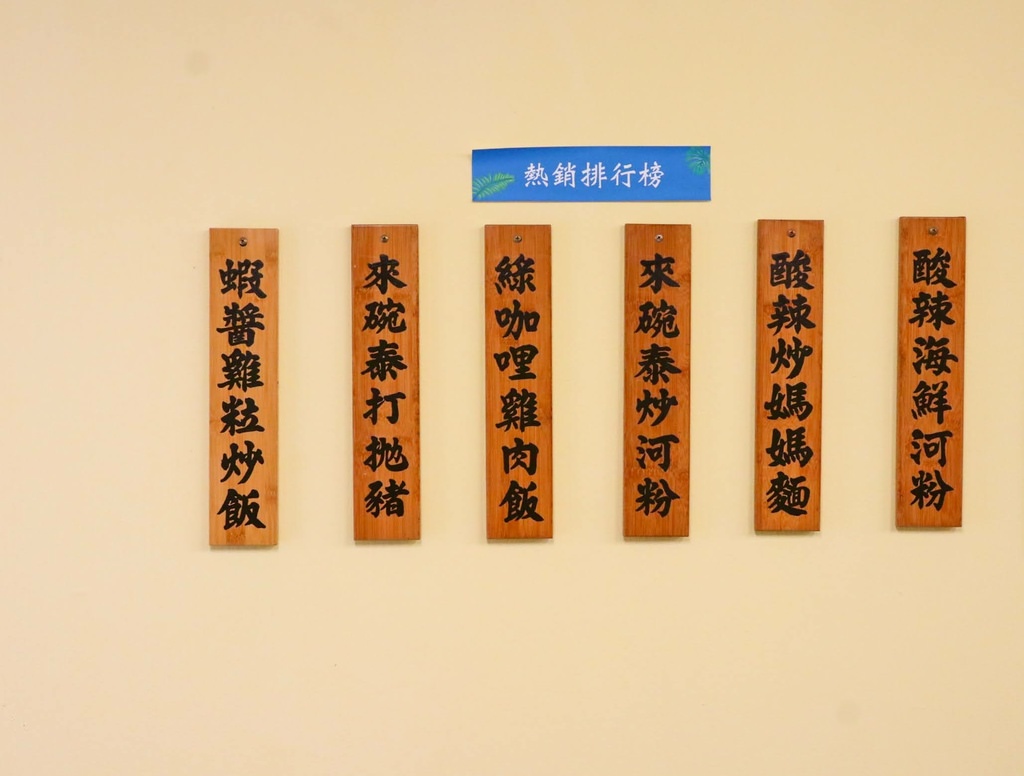 熱銷排行榜
酸辣海鮮河粉
酸辣炒媽媽麵
來碗泰炒河粉
綠咖哩雞肉飯
來碗泰打拋豬
蝦醬雞粒炒飯